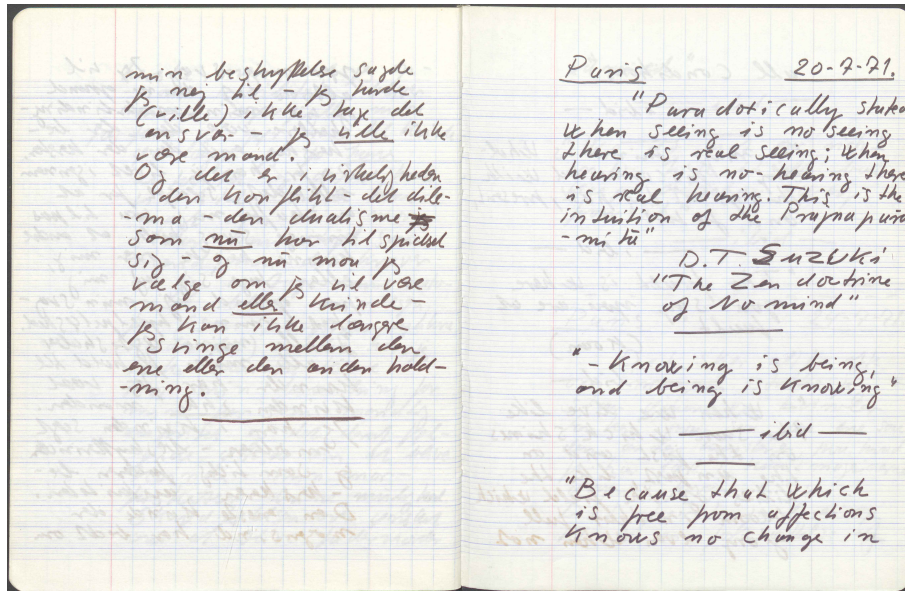 min beskyttelse sagde
jeg nej til - jeg turde
(ville) ikke tage det
ansvar - jeg ville ikke
være mand.
Og det er i virkeligheden
den konflikt - det dile-
-ma - den dualisme
som nu har tilspidset
sig - og nu man jeg
vælge om jeg vil være
mand eller kvinde -
jeg kan ikke længere
svinge mellem den
ene eller den anden hold-
-ning.
Paris 20-7-71.
"Paradoxically stated
when seeing is no seeing
there is real seeing; when
hearing is no-hearing there
is real hearing. This is the
intuition of the Prajnapara
-mita"
D.T. SUZUKI
"The Zen doctrine
of No mind"
"- Knowing is being,
and being is Knowing"
ibid
"Because that which
is free from affections
Knows no change in